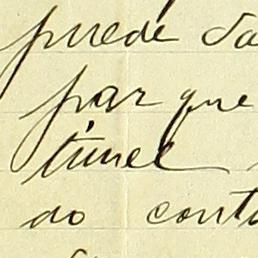 puede da
par que
túnel
do cont